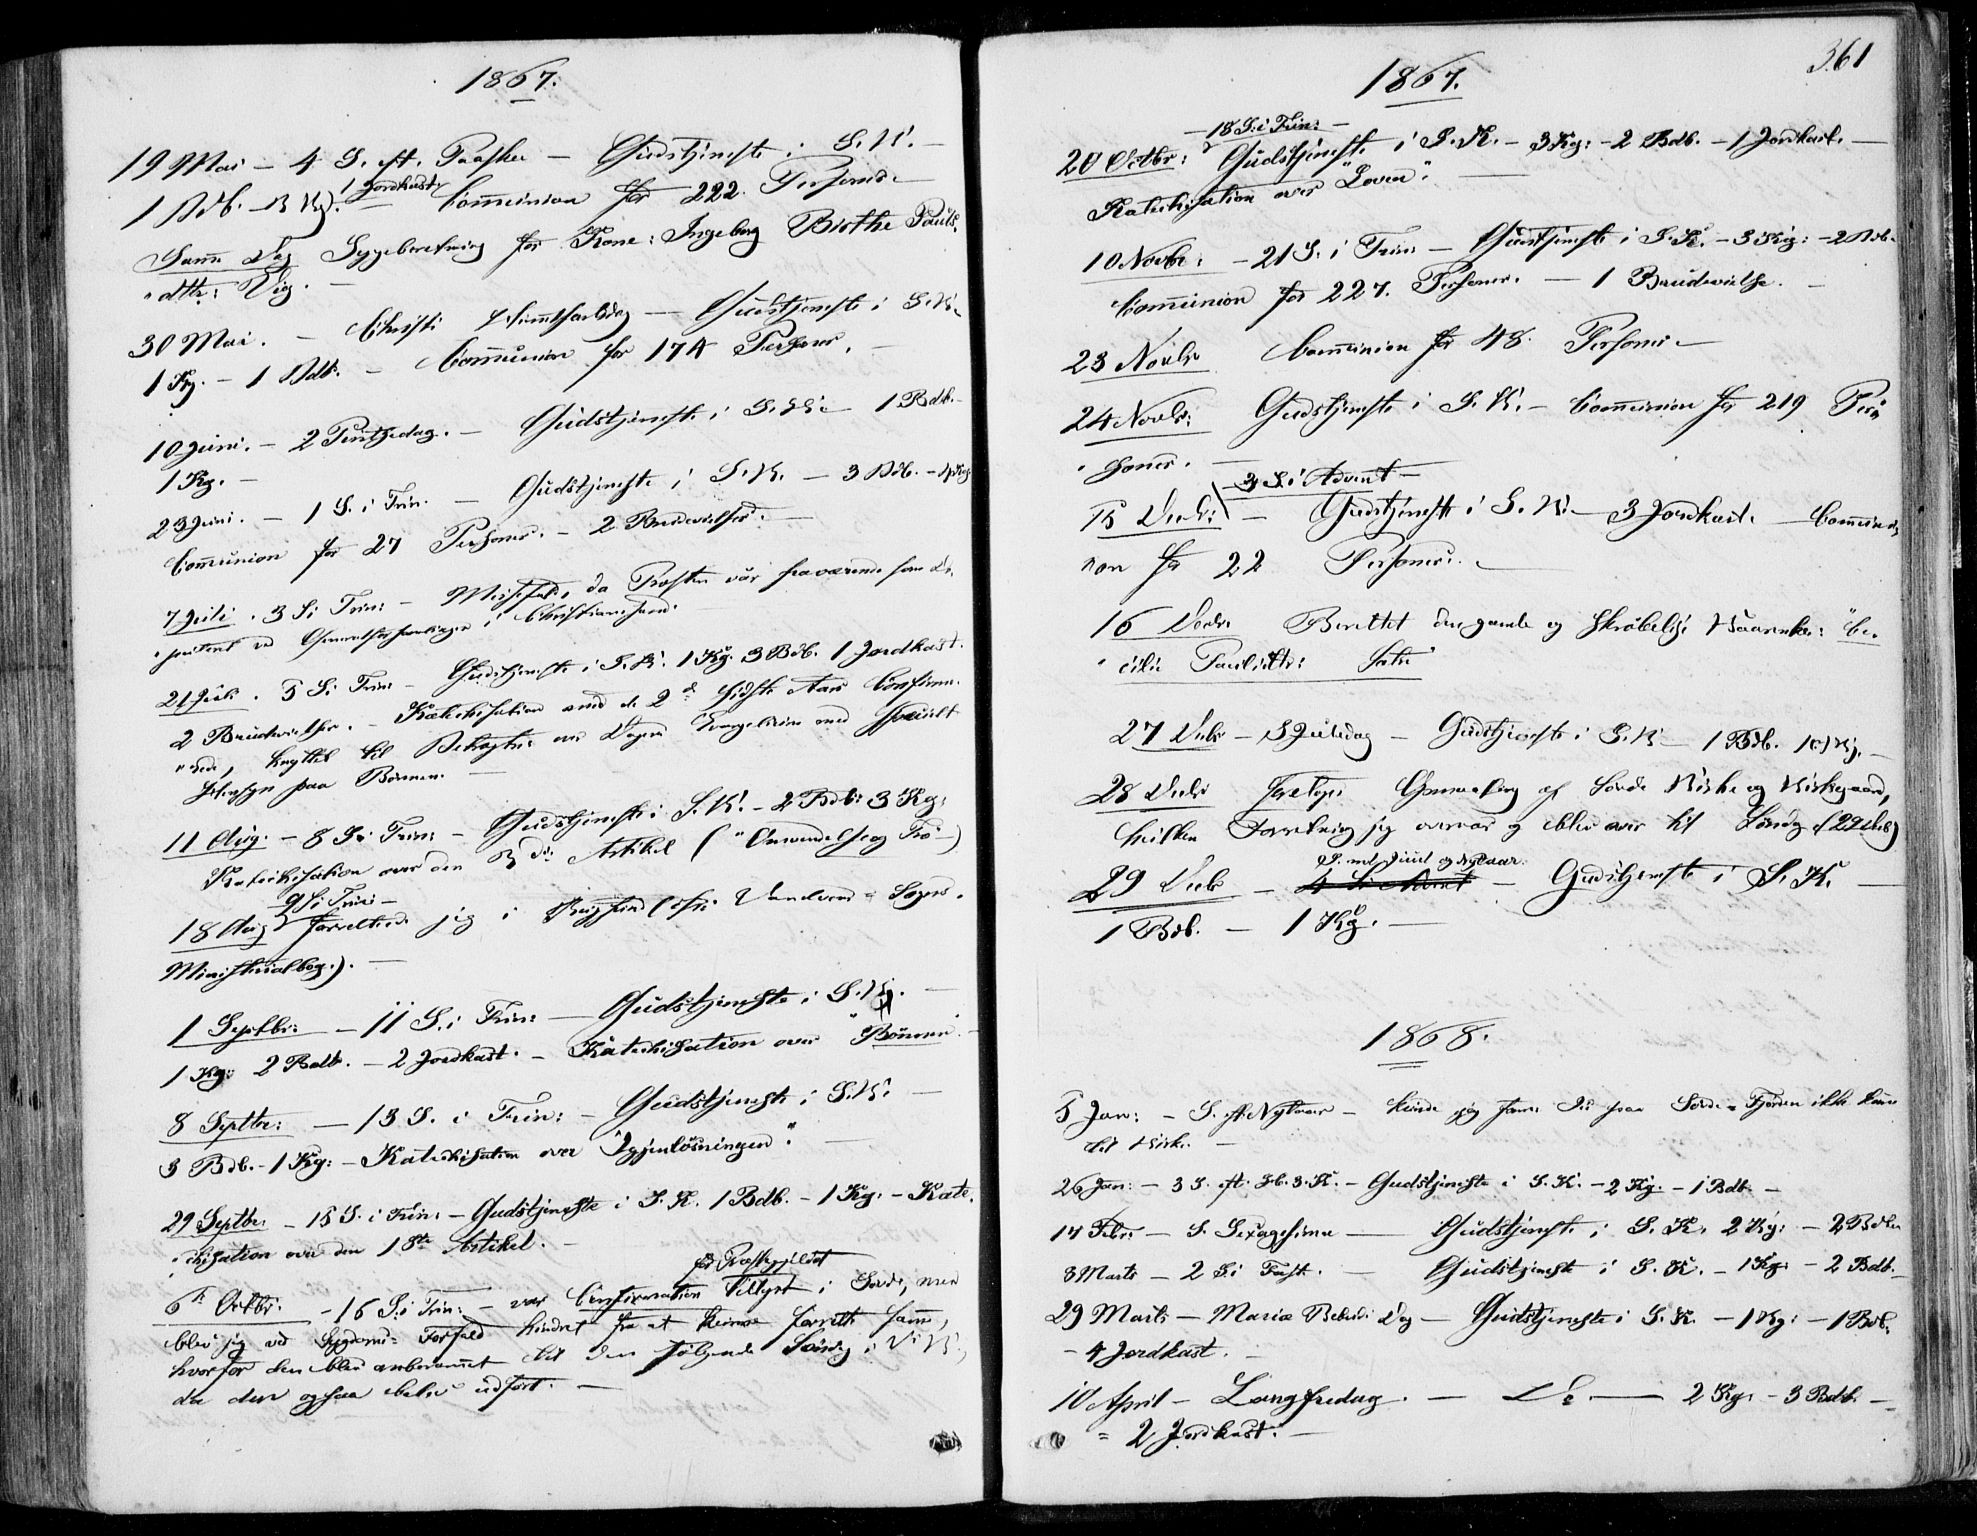 1867.
19 Mai – 4 S. eft. Paaske – Gudstjeneste i S. K. –
1 Bdb. – 3 Kg. 1 Jordkast – Communion for 222 Personer
Samme Dag Sygeberetning for Kone: Ingeborg Birthe Pauls
dtr: Vig. –
30 Mai. – Christi Himmelfartsdag – Gudstjeneste i S. K.
1 Kg. – 1 Bdb. – Communion for 174 Personer. –
10 Juni. – 2 Pintsedag. – Gudstjeneste i S. K. – 1 Bdb. –
1 Kg. –
23 Juni. – 1 S. i Trin. – Gudstjeneste i S. K. – 3 Bdb. – 4 Kg.
Communion for 27 Personer. – 2 Brudevielser. –
7 Juli. 3 S. i Trin: – Messefald, da Presten var fraværende som
ved i Christianssand.
21 Juli. 5 S. i Trin: – Gudstjeneste i S. K. 1 Kg. 3 Bdb. 1 Jordkast.
2 Brudevielser. – Katechisation med de 2de sidste Aars Confirme-
rede, knyttet til Betragtn: over Dagens Evangelium med specielt
Hensyn paa Børnene. –
11 Aug: – 8 S. i Trin: – Gudstjeneste i S. K. – 2 Bdb: 3 Kg:
Katechisation over den 3die Artikel ("Omvendelse og Tro")
9 S. i Trin: –
18 Aug forrettede jeg i (ofr. Sogns
Ministerialbog.). –
1 Septbr: – 11 S. i Trin: – Gudstjeneste i S. K. –
1 Kg: 2 Bdb. – 2 Jordkast. – Katechisation over "Bønnen". –
8 Septbr: – 13 S. i Trin: – Gudstjeneste i S. K. –
3 Bdb. – 1 Kg: – Katechisation over "Igjenløsningen". –
29 Septbr – 15 S. i Trin: – Gudstjeneste i S. K. 1 Bdb. – 1 Kg: – Kate-
chisation over den 1ste Artikel. –
for Præstegjeldet
6te Octbr. – 16 S. i Trin: – var Confirmation tillyst i Søvde, men
blev jeg ved Sygdoms-Forfald hindret fra at kunne forrette samme,
hvorfor den blev anberammet til den følgende Søndag i V. K.,
da den ogsaa blev udført. –
361
1867.
– 18 S. i Trin: –
20 Octbr: Gudstjeneste i S. K. – 3 Kg: – 2 Bdb. – 1 Jordkast. –
Katechisation over "Loven". –
10 Novbr: – 21 S. i Trin: – Gudstjeneste i S. K. – 3 Kg: – 2 Bdb.
Communion for 227. Personer. – 1 Brudevielse. –
23 Novbr Communion for 48. Personer –
24 Novbr: Gudstjeneste i S. K. – Communion for 219 Per-
soner. –
3 S. i Advent –
15 Decbr: – Gudstjeneste i S. K. – 3 Jordkast. – Communi-
on for 22 Personer. –
16 Decbr Berettet den gamle og skrøbelige : Ce-
cilie Paulsdtr:
27 Decbr – 3 Juledag – Gudstjeneste i S. K. – 1 Bdb. 1 Kg. –
28 Decbr af Søvde Kirke og Kirkegaard,
hvilken Forretning jeg overvar og blev over til Søndag (29 Decbr)
S. ml. Juul og Nytaar:
29 Decbr – 4 S. i Advent – Gudstjeneste i S. K. –
1 Bdb. – 1 Kg. –
1868.
5 Jan: – S. eft. Nytaar – kunde jeg form: Iis paa Søvde-Fjorden ikke komme
til Kirke. –
26 Jan: – 3 S. eft. H. 3. K. – Gudstjeneste i S. K. – 2 Kg. – 1 Bdb. –
Febr: – S. Sexagesima – Gudstjeneste i S. K. 2 Kg: – 2 Bdb.
8 Marts – 2 S. i Faste. – Gudstjeneste i S. K. – 1 Kg: – 2 Bdb. –
29 Marts – Mariæ Bebud: Dag – Gudstjeneste i S. K. – 1 Kg: – 1 Bdb.
– 4 Jordkast. –
10 April – Langfredag. – Do – 2 Kg. – 3 Bdb. –
= 2 Jordkast. –